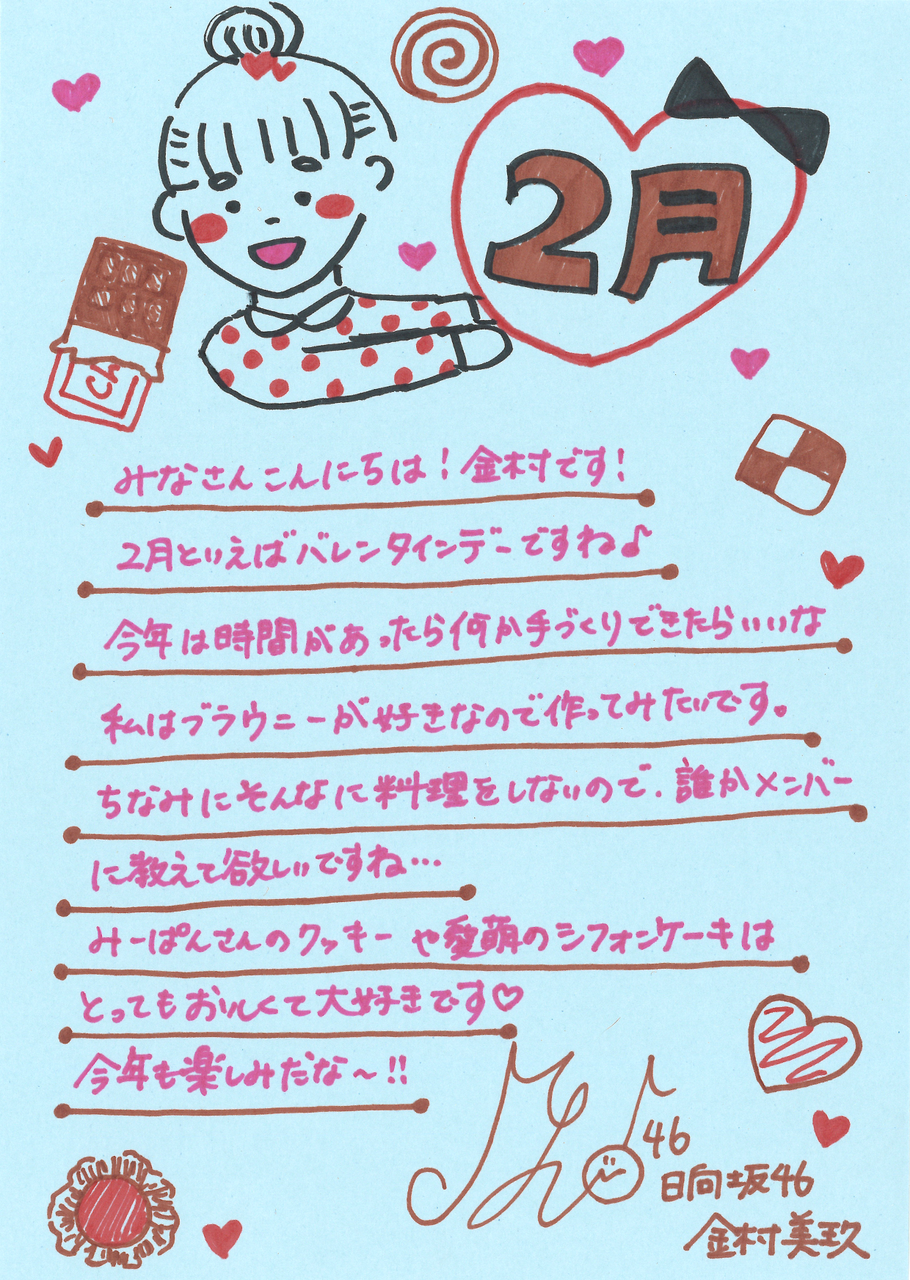 2月
CA
みなさんこんにちは!金村です!
2月といえばバレンタインデーですね♪
今年は時間があったら何か手づくりできたらいいな
私はブラウニーが好きなので作ってみたいです。
ちなみにそんなに料理をしないので、誰かメンバー
に教えて欲しいですね…
みーぱんさんのクッキーや愛萌のシフォンケーキは
とってもおいしくて大好きです♡
今年も楽しみだな〜!!
46
日向坂46
金村美玖